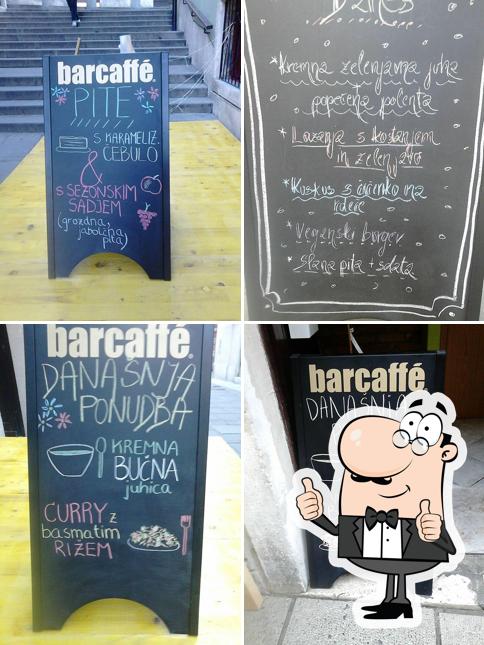 barcaffé
PITE
S KARAMELIZ.
ČEBULO
&
S SEZONSKIM
SADJEM
(grozdna,
jabolčna
pita)
Danes
*Kremna zelenjavna juha
popečena polenta
*Lazanja s kostanjem
in zelenjavo
*Kuskus s čičeriko na
*Veganski burger
*Slana pita + solata
barcaffé
DANAŠNJA
PONUDBA
KREMNA
BUČNA
juhica
CURRY z
basmatim
RIŽEM
barcaffé
DANAŠNJA